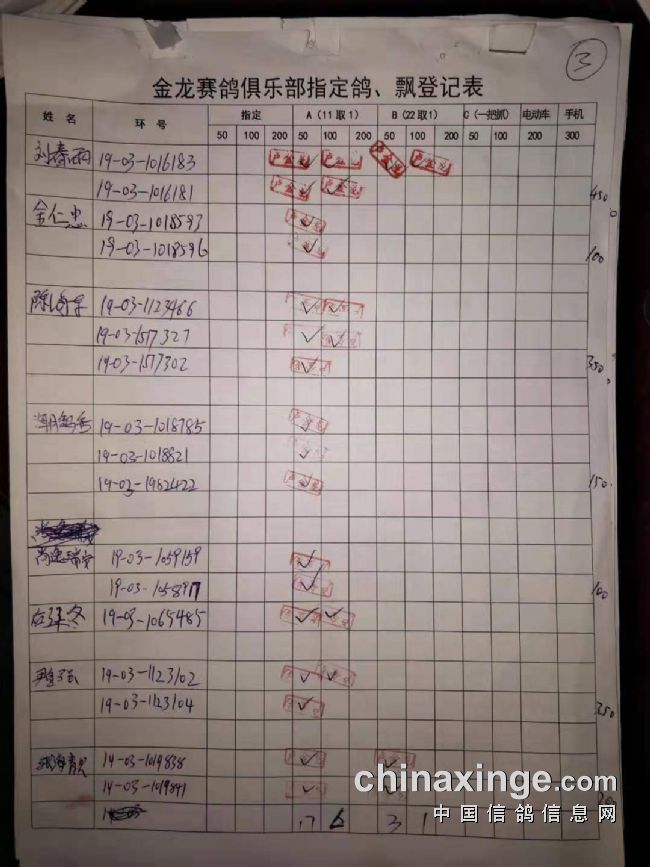 3
金龙赛鸽俱乐部指定鸽、飘登记表
姓名 环号 指定 A（11取1） B（22取1） C（一把抓） 电动车 手机
50 100 200 50 100 200 50 100 200 50 100 200 200 300
刘春雨 19-03-1016183
19-03-1016181 450
金仁忠 19-03-1018593
19-03-1018596 100
19-03-1123486
19-03-1517327
19-03-1577302 350
19-03-1018785
19-03-1018821
19-03-1982422 150
19-03-1059159
19-03-1058917 100
19-03-1065485
19-03-1123102
19-03-1123104 350
19-03-1019838
19-03-1019841
17 6 3 1
chinaxinge.com
中国信鸽信息网